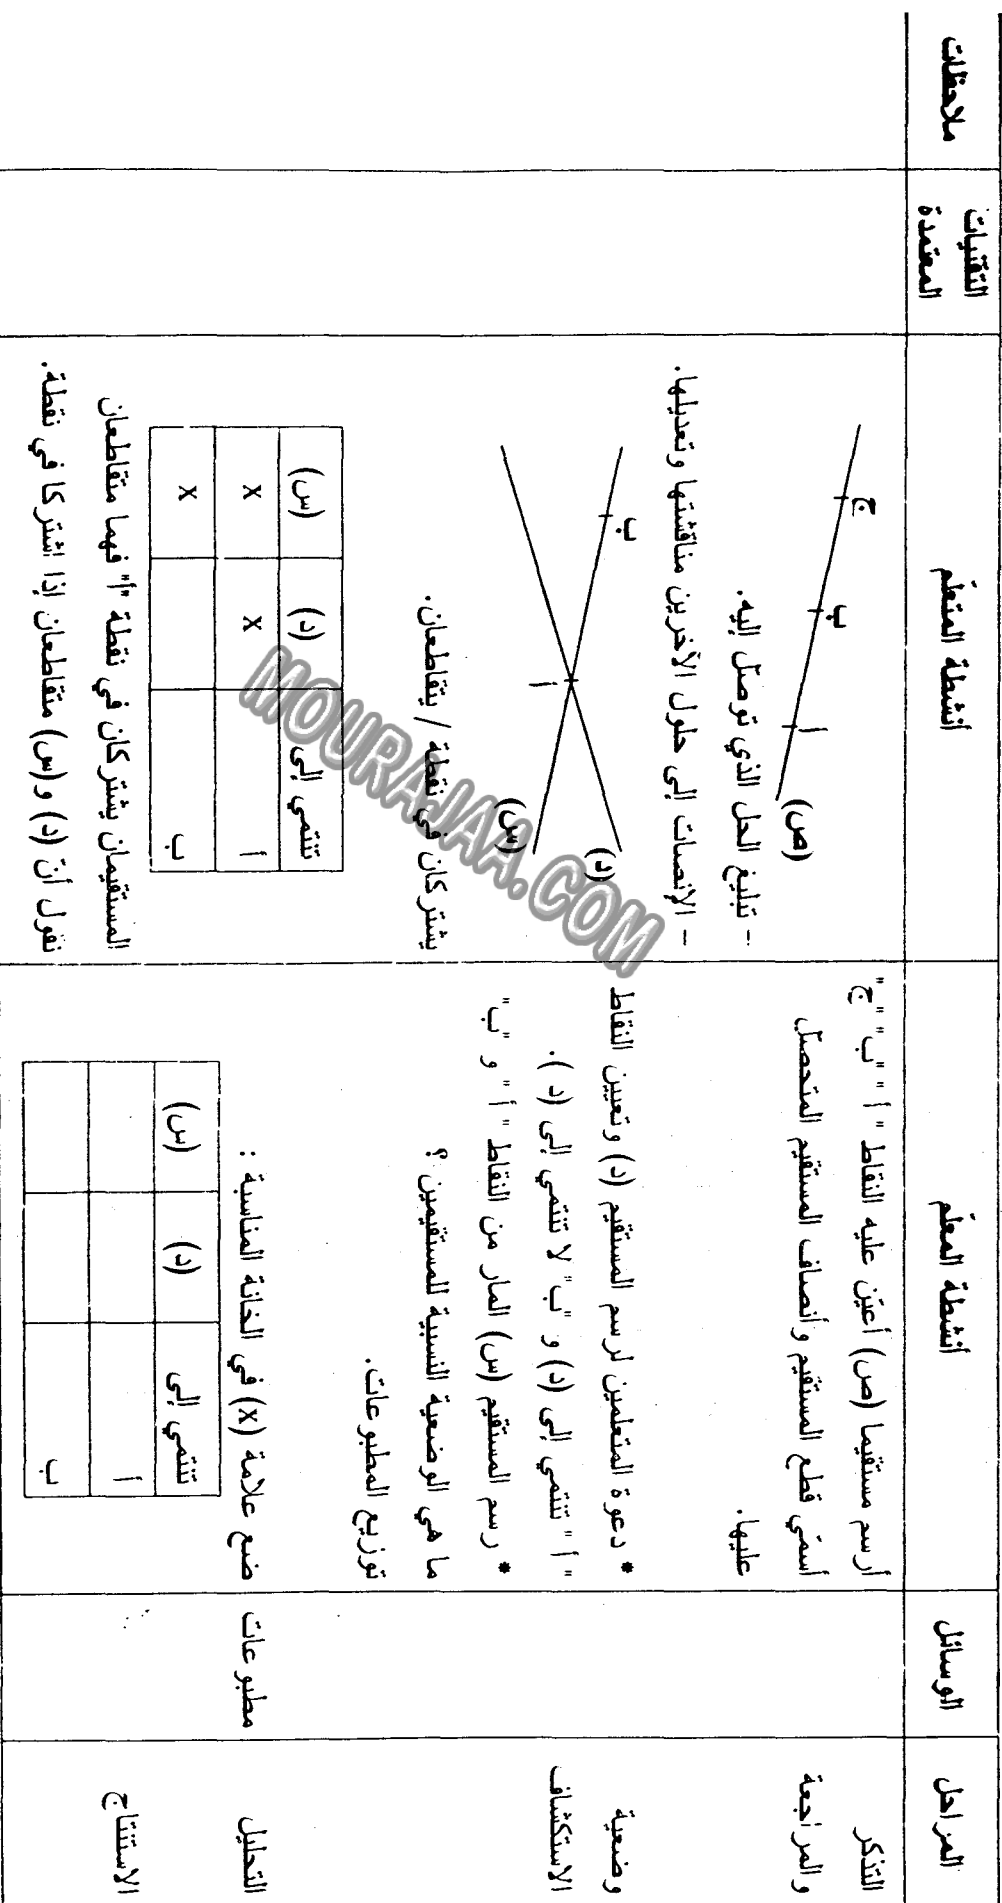 المراحل
الوسائل
أنشطة المعلّم
أنشطة المتعلّم
التقنيات
المعتمدة
ملاحظات
التذكر
والمراجعة
أرسم مستقيما (ص) أعيّن عليه النقاط " أ " "ب" "ج"
أسمّي قطع المستقيم وأنصاف المستقيم المتحصل
عليها.
ج
ب
أ
(ص)
- تبليغ الحل الذي توصل إليه.
- الإنصات إلى حلول الآخرين مناقشتها وتعديلها.
وضعية
الاستكشاف
* دعوة المتعلمين لرسم المستقيم (د) وتعيين النقاط
" أ " تنتمي إلى (د) و "ب" لا تنتمي إلى (د ).
* رسم المستقيم (س) المار من النقاط " أ " و "ب"
ما هي الوضعية النسبية للمستقيمين ؟
توزيع المطبوعات.
ب
أ
(د)
(س)
يشتركان في نقطة / يتقاطعان.
التحليل
مطبوعات
ضع علامة (x) في الخانة المناسبة :
تنتمي إلى (د) (س)
أ
ب
تنتمي إلى (د) (س)
أ x x
ب x
الاستنتاج
المستقيمان يشتركان في نقطة "أ" فهما متقاطعان
نقول أنّ (د) و(س) متقاطعان إذا اشتركا في نقطة.
MOURAJAA.COM